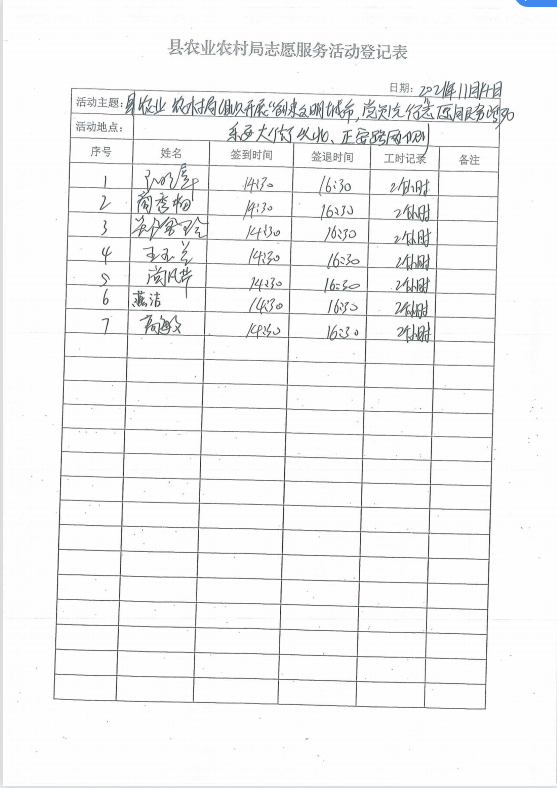 县农业农村局志愿服务活动登记表
日期：2021年11月4日
活动主题：县农业农村局组织开展“创建文明城市，党员先行”志愿服务活动
活动地点：东西大街以北、正安路两侧
序号 姓名 签到时间 签退时间 工时记录 备注
1 14:30 16:30 2个小时
2 14:30 16:30 2个小时
3 14:30 16:30 2个小时
4 王玉兰 14:30 16:30 2个小时
5 党风芹 14:30 16:30 2个小时
6 燕洁 14:30 16:30 2个小时
7 高敏 14:30 16:30 2个小时